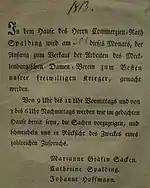 1813.
In dem Hause des Herrn Commerzien-Rath
Spalding wird am dieses Monats, der
Anfang zum Verkauf der Arbeiten des Meck-
lenburgischen Damen-Verein zum Besten
unserer freiwilligen Krieger, gemacht
werden.
Von 9 Uhr bis 12 Uhr Vormittags und von
3 bis 6 Uhr Nachmittag werden wir im gedachten
Hause bereit seyn, die Sachen vorzuzeigen, und
schmeicheln uns in Rücksicht des Zweckes eines
zahlreichen Zuspruchs.
Marianne Gräfin Sacken.
Catharine Spalding.
Johanne Hoffmann.